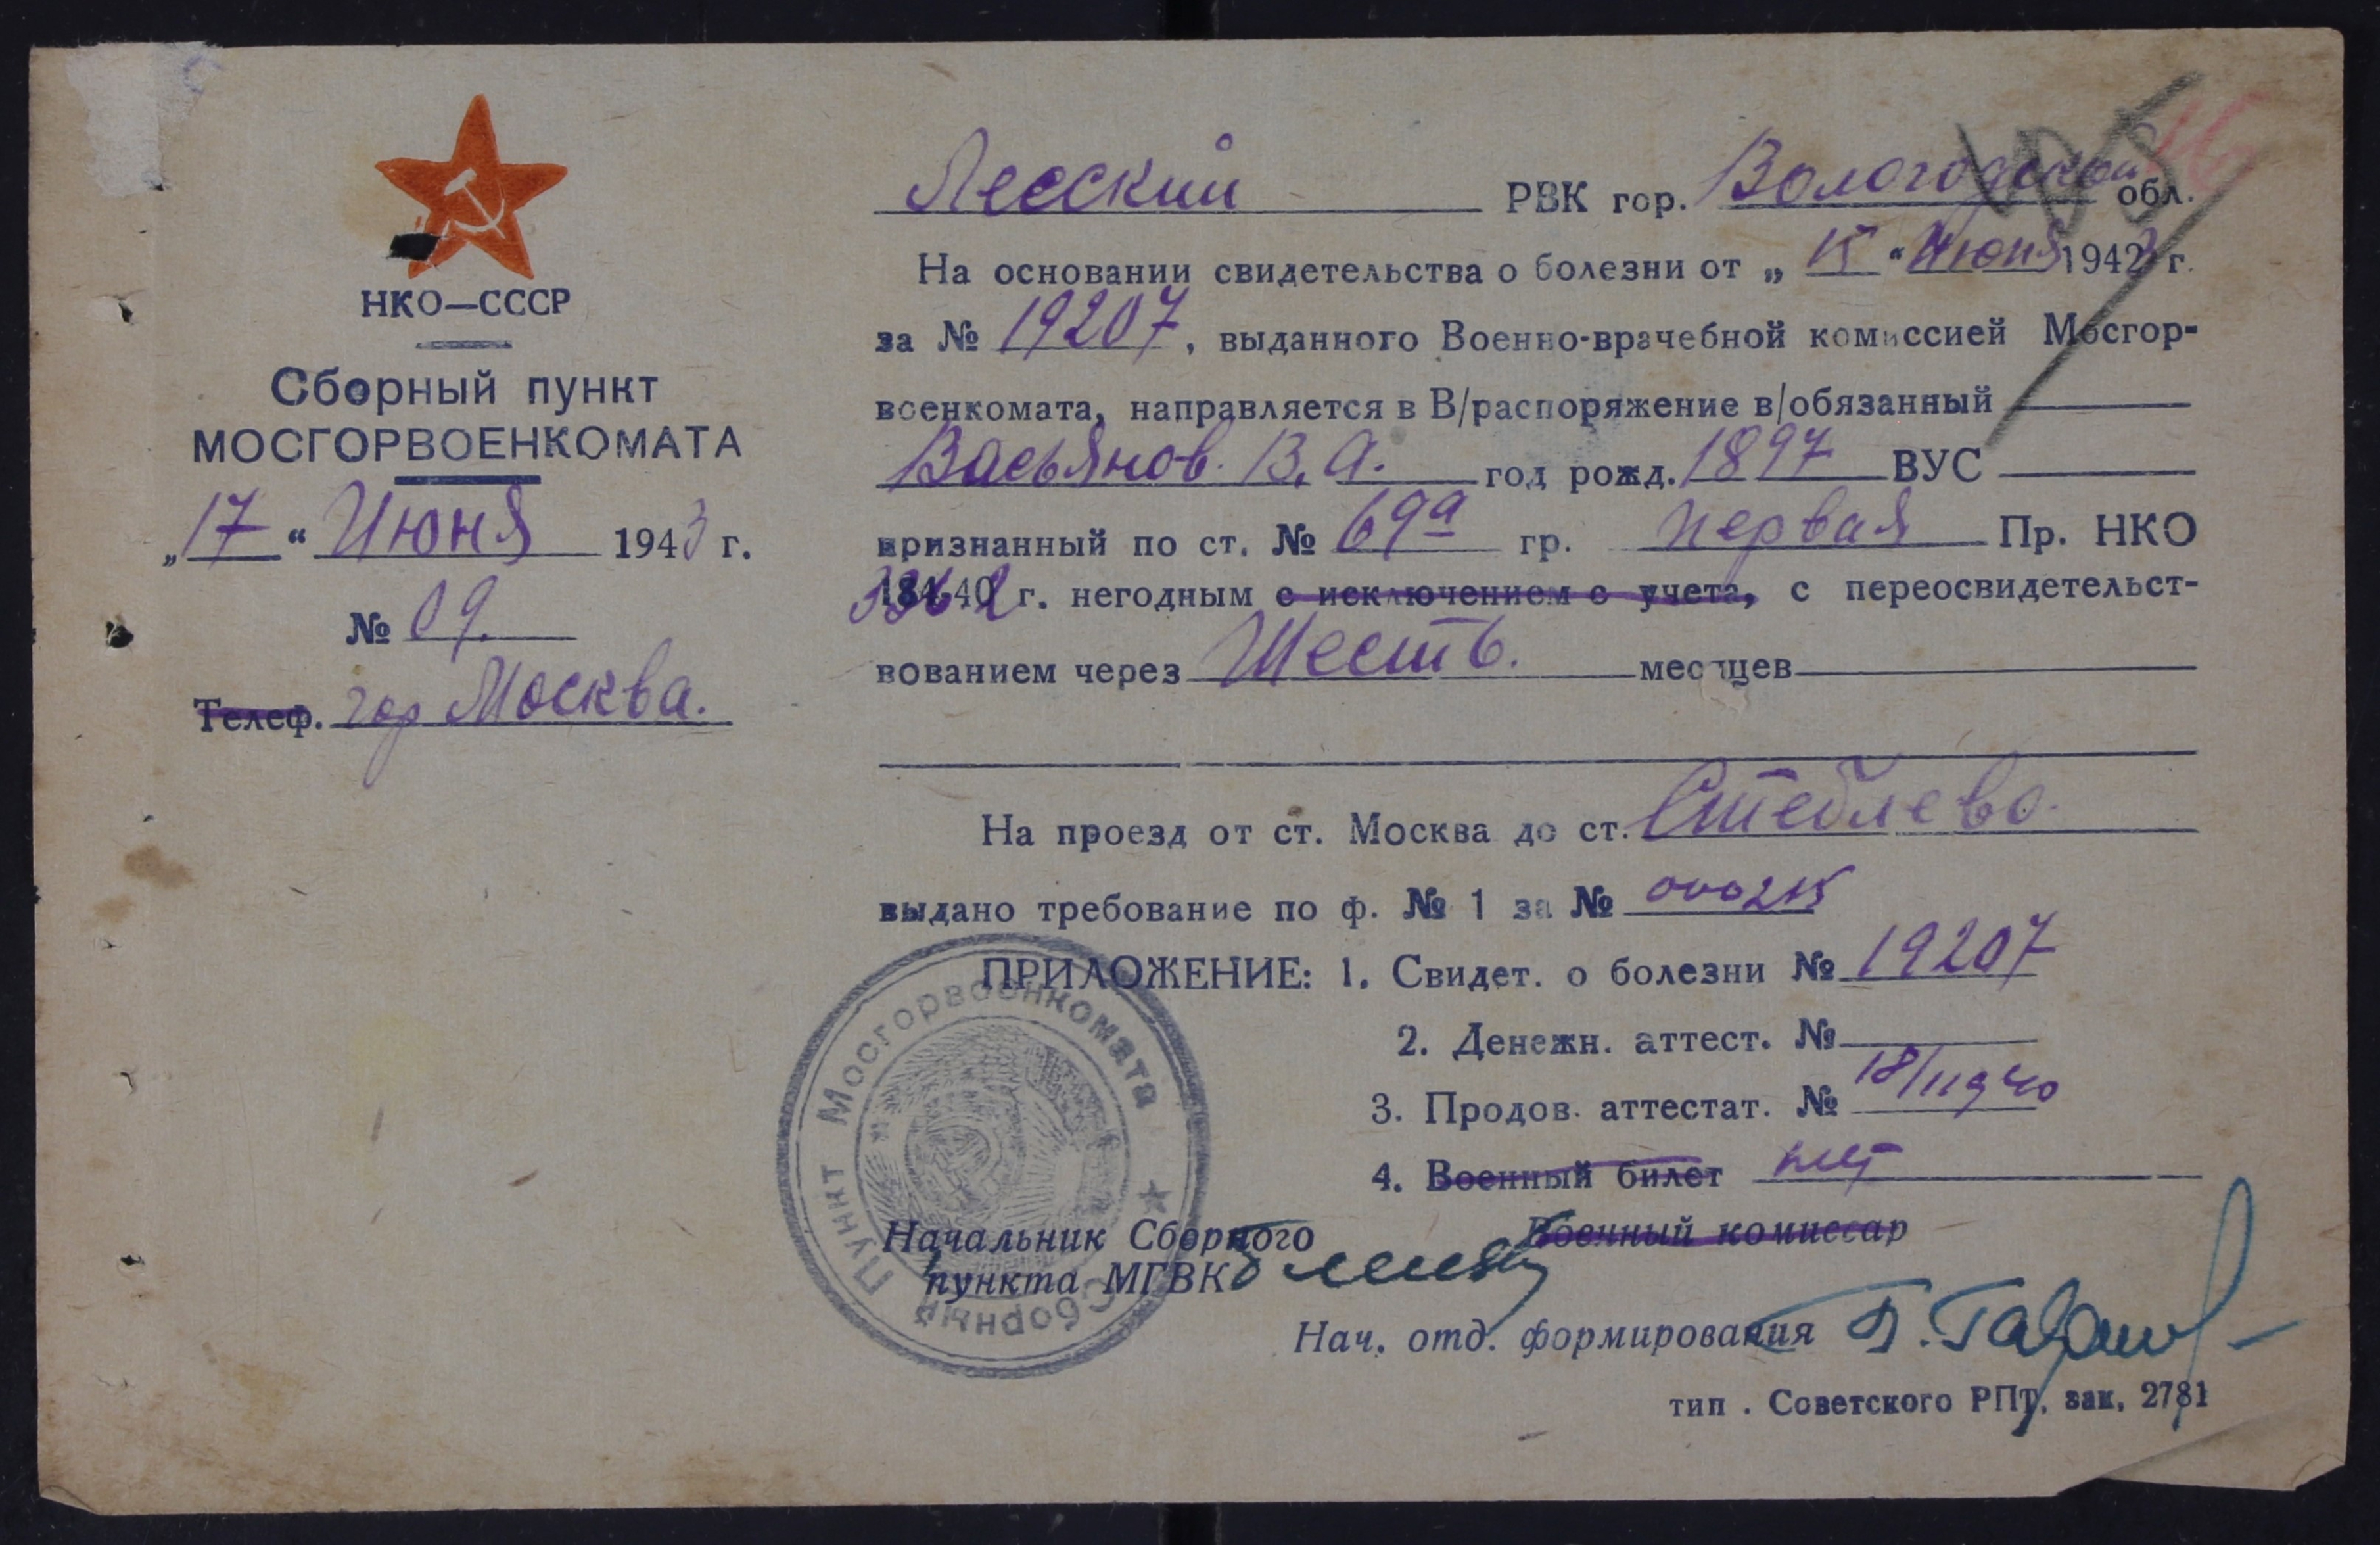 НКО—СССР
Сборный пункт
МОСГОРВОЕНКОМАТА
„17“ Июня 1943 г.
№ 09.
Телеф. гор Москва.
Леский РВК гор. Вологодской обл.
На основании свидетельства о болезни от „15“ Июня 1943 г.
за № 19207, выданного Военно-врачебной комиссией Мосгор-
военкомата, направляется в В/распоряжение в/обязанный
Васьянов. В. А. год рожд. 1897 ВУС
признанный по ст. № 69а гр. первая Пр. НКО
336 42 г. негодным с исключением с учета, с переосвидетельст-
вованием через Шесть. месяцев
На проезд от ст. Москва до ст. Стеблево.
выдано требование по ф. № 1 за № 000215
ПРИЛОЖЕНИЕ: 1. Свидет. о болезни № 19207
2. Денежн. аттест. №
3. Продов. аттестат. № 18/11940
4. Военный билет нет
Начальник Сборного
пункта МГВК
Военный комиссар
Нач. отд. формирования
тип. Советского РПТ, зак, 2781
Сборный Пункт Мосгорвоенкомата